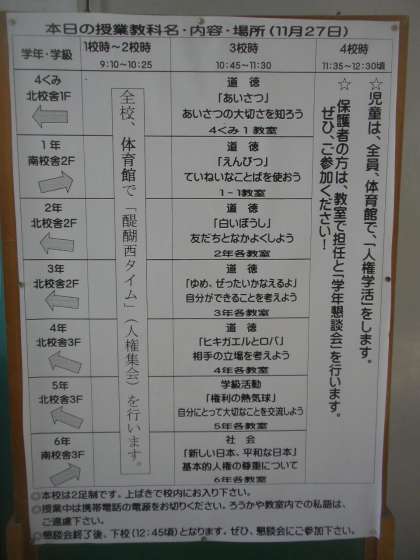 本日の授業教科名・内容・場所(11月27日)
学年・学級
1校時～2校時
9:10～10:25
3校時
10:45～11:30
4校時
11:35～12:30頃
4くみ
北校舎1F
道徳
「あいさつ」
あいさつの大切さを知ろう
4くみ1教室
1年
南校舎2F
道徳
「えんぴつ」
ていねいなことばを使おう
1-1教室
2年
北校舎2F
道徳
「白いぼうし」
友だちとなかよくしよう
2年各教室
3年
北校舎2F
道徳
「ゆめ、ぜったいかなえるよ」
自分ができることを考えよう
3年各教室
4年
北校舎3F
道徳
「ヒキガエルとロバ」
相手の立場を考えよう
4年各教室
5年
北校舎3F
学級活動
「権利の熱気球」
自分にとって大切なことを交流しよう
5年各教室
6年
南校舎3F
社会
「新しい日本、平和な日本」
基本的人権の尊重について
6年各教室
全校、体育館で「醍醐西タイム」(人権集会)を行います。
☆児童は、全員、体育館で、「人権学活」をします。
☆保護者の方は、教室で担任と「学年懇談会」を行います。
ぜひ、ご参加ください!
◎本校は2足制です。上ばきで校内にお入り下さい。
◎授業中は携帯電話の電源をお切りください。ろうかや教室内での私語は、
ご遠慮下さい。
◎懇談会終了後、下校(12:45頃)となります。ぜひ、懇談会にご参加下さい。